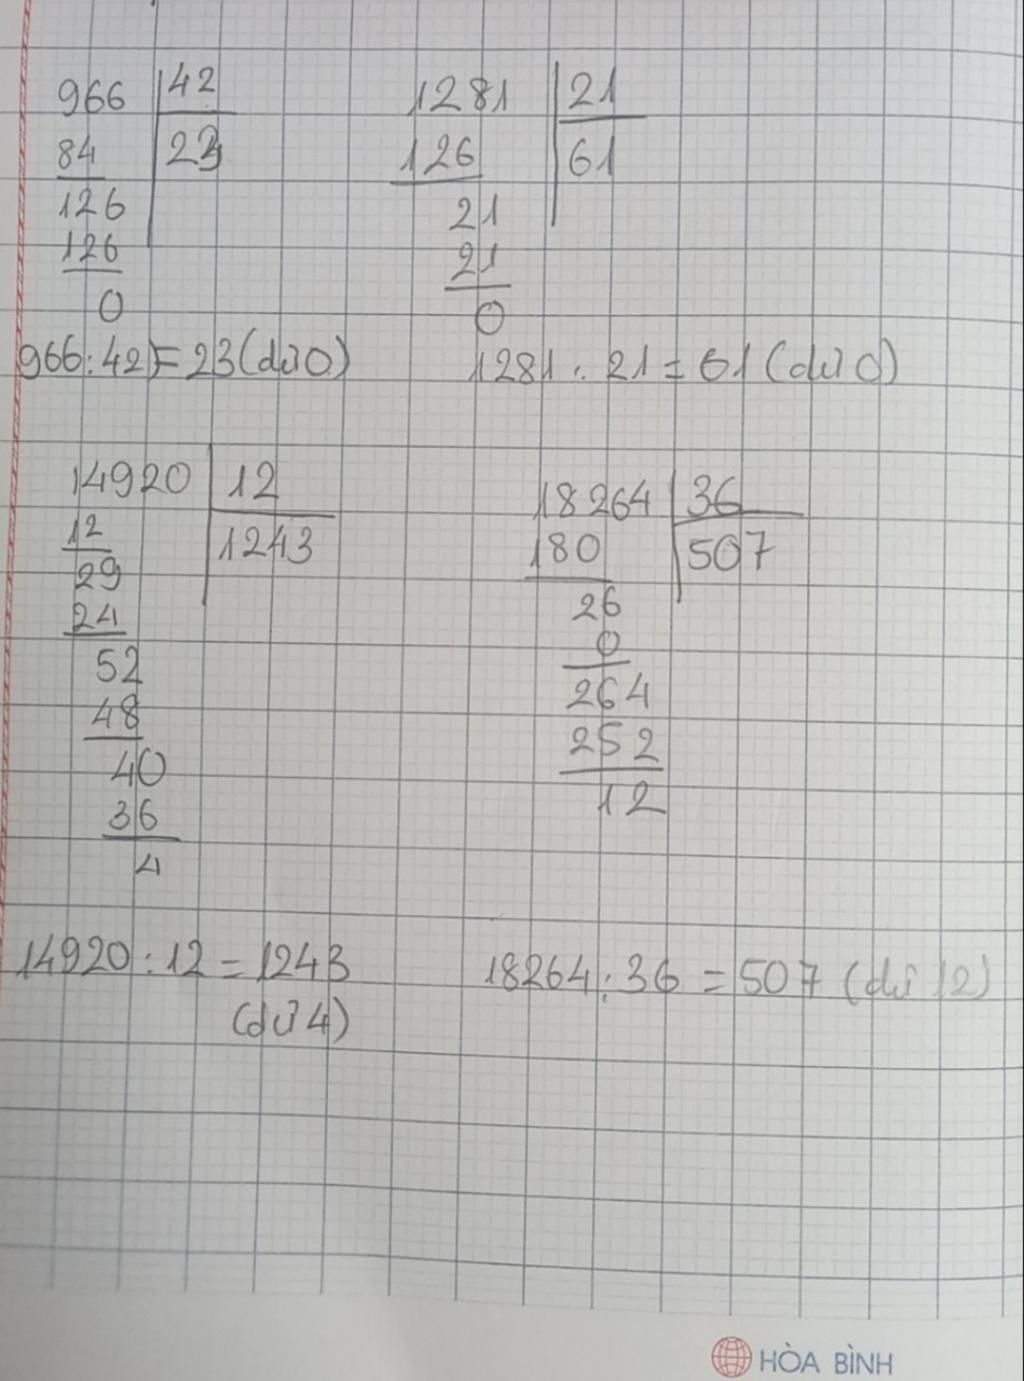 966 42
84 23
126
126
0
966:42=23(dư 0)
1281 21
126 61
21
21
0
1281:21=61(dư 0)
14920 12
12 1243
29
24
52
48
40
36
4
14920:12=1243
(dư 4)
18264 36
180 507
26
0
264
252
12
18264:36=507(dư 12)
HÒA BÌNH